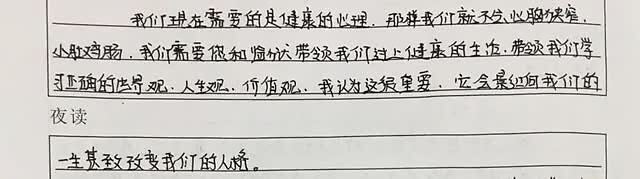 我们现在需要的是健康的心理，那样我们就不会心胸狭窄，
小肚鸡肠，我们需要您和 带领我们过上健康的生活，带领我们学
习正确的世界观，人生观，价值观，我认为这很重要，它会影响我们的
夜读
一生甚至改变我们的人格。